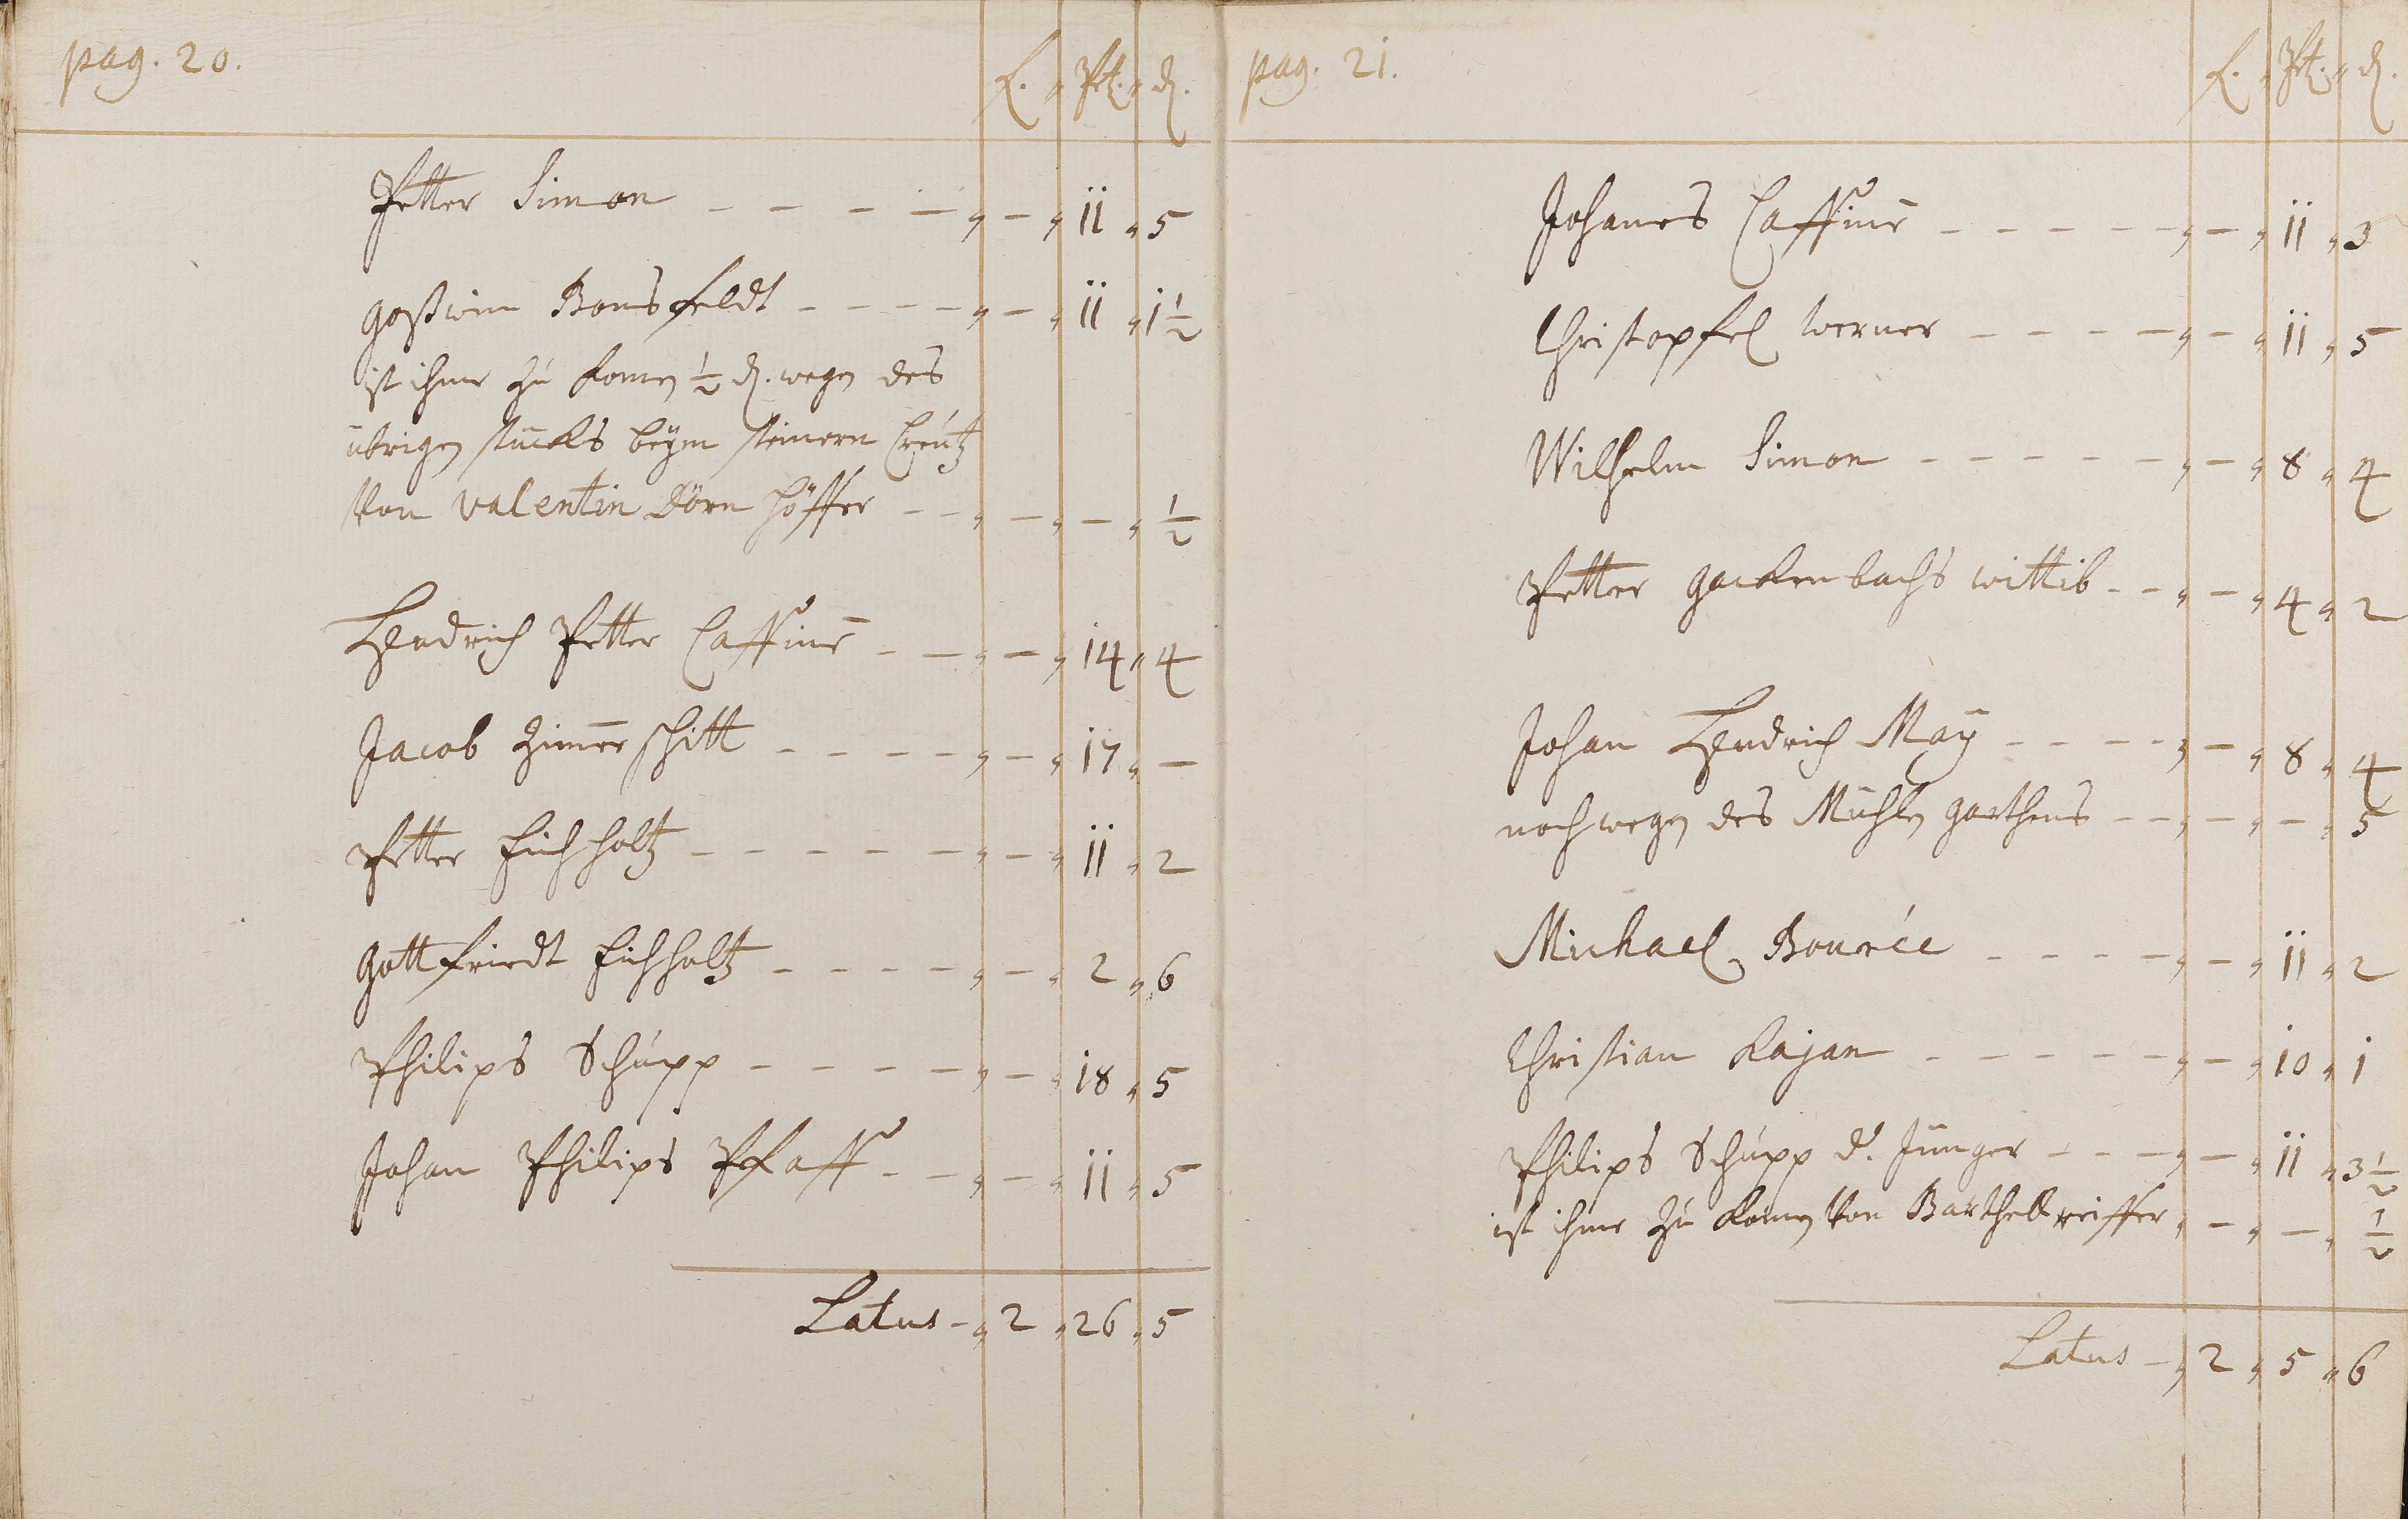 pag. 20.
f. " Ptz. " d.
Petter Simon - - - - " - " 11 " 5
goßwin Bonsfeldt - - - - " - " 11 " 1 1/2
ist ihme zu komen 1/2 d. wegen des
übrigen stücks beÿm steinern Creütz
Von Valentin Dörnhöffer - - " - " - " 1/2
Hendrich Petter Caffine - - " - " 14 " 4
Jacob Zimerschitt - - - - " - " 17 " -
Petter Eichholtz - - - - - " - " 11 " 2
Gottfriedt Eichholtz - - - - " - " 2 " 6
Philips Schupp - - - - " - " 18 " 5
Johan Philips Pfaff - - " - " 11 " 5
Latus - " 2 " 26 " 5
pag. 21.
f. " Ptz. " d.
Johanes Caffine - - - - - " - " 11 " 3
Christopfel werner - - - - " - " 11 " 5
Wilhelm Simon - - - - - " - " 8 " 4
Petter gackenbachs wittib - - " - " 4 " 2
Johan Hendrich Maÿ - - - - " - " 8 " 4
noch wegen des Mühlen garthens - - " - " - " 5
Michael Bourée - - - - " - " 11 " 2
Christian Kajan - - - - - " - " 10 " 1
Philips Schupp d. Jünger - - - " - " 11 " 3 1/2
ist ihme zu komen Von Barthel reiffer " - " - " 1/2
Latus - " 2 " 5 " 6